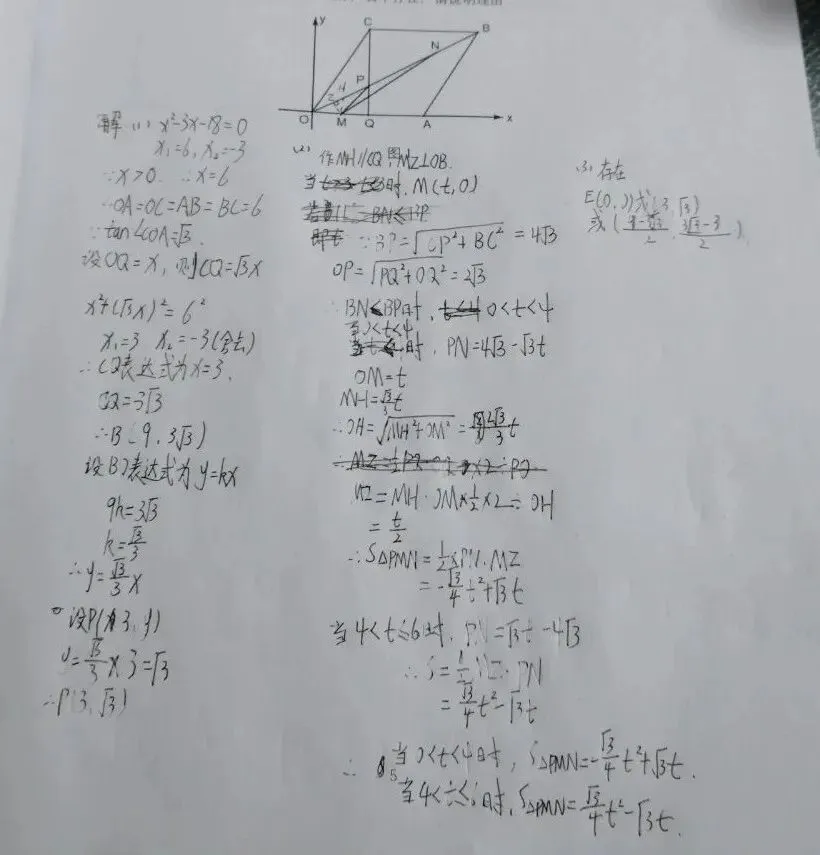 y
C
B
N
P
H
Z
O
M
Q
A
x
解(1) x²-3x-18=0
x₁=6, x₂=-3
∵x>0 ∴x=6
∴OA=OC=AB=BC=6
∵tan∠COA=√3.
设OQ=x, 则CQ=√3x
x²+(√3x)²=6²
x₁=3 x₂=-3(舍去)
∴CQ表达式为x=3.
CQ=3√3
∴B(9,3√3)
设BO表达式为y=kx
9k=3√3
k=√3/3
∴y=√3/3 x
设P(3,y)
y=√3/3×3=√3
∴P(3,√3)
(2) 作MH//CQ MZ⊥OB.
当 时, M(t,0)
∵BP=√(CP²+BC²)=4√3
OP=√(PQ²+OQ²)=2√3
∴BN<BP时, 0<t<4
当0<t<4
时, PN=4√3-√3t
OM=t
MH=√3/3 t
∴OH=√(MH²+OM²)=2√3/3 t
MZ=MH·OM×1/2×2÷OH
=t/2
∴S△PMN=1/2×PN·MZ
=-√3/4 t²+√3t
当4<t≤6时, PN=√3t-4√3
∴S=1/2 MZ·PN
=√3/4 t²-√3t
∴ 当0<t<4时, S△PMN=-√3/4 t²+√3t.
当4<t≤6时, S△PMN=√3/4 t²-√3t.
(3) 存在
E(0,0)或(3,√3)
或